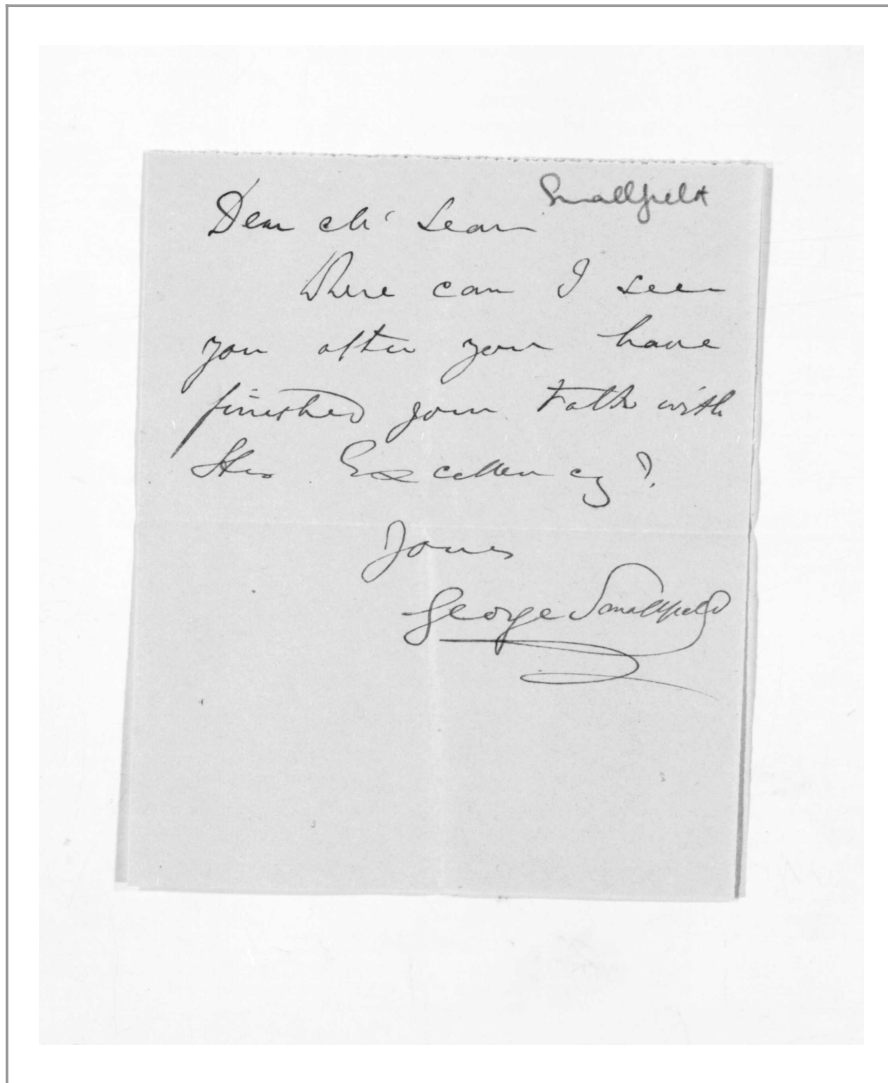 Smallfield
Dear Mc Lean
Where can I see
you after you have
finished your Talk with
His Excellency?
Yours
George Smallfield